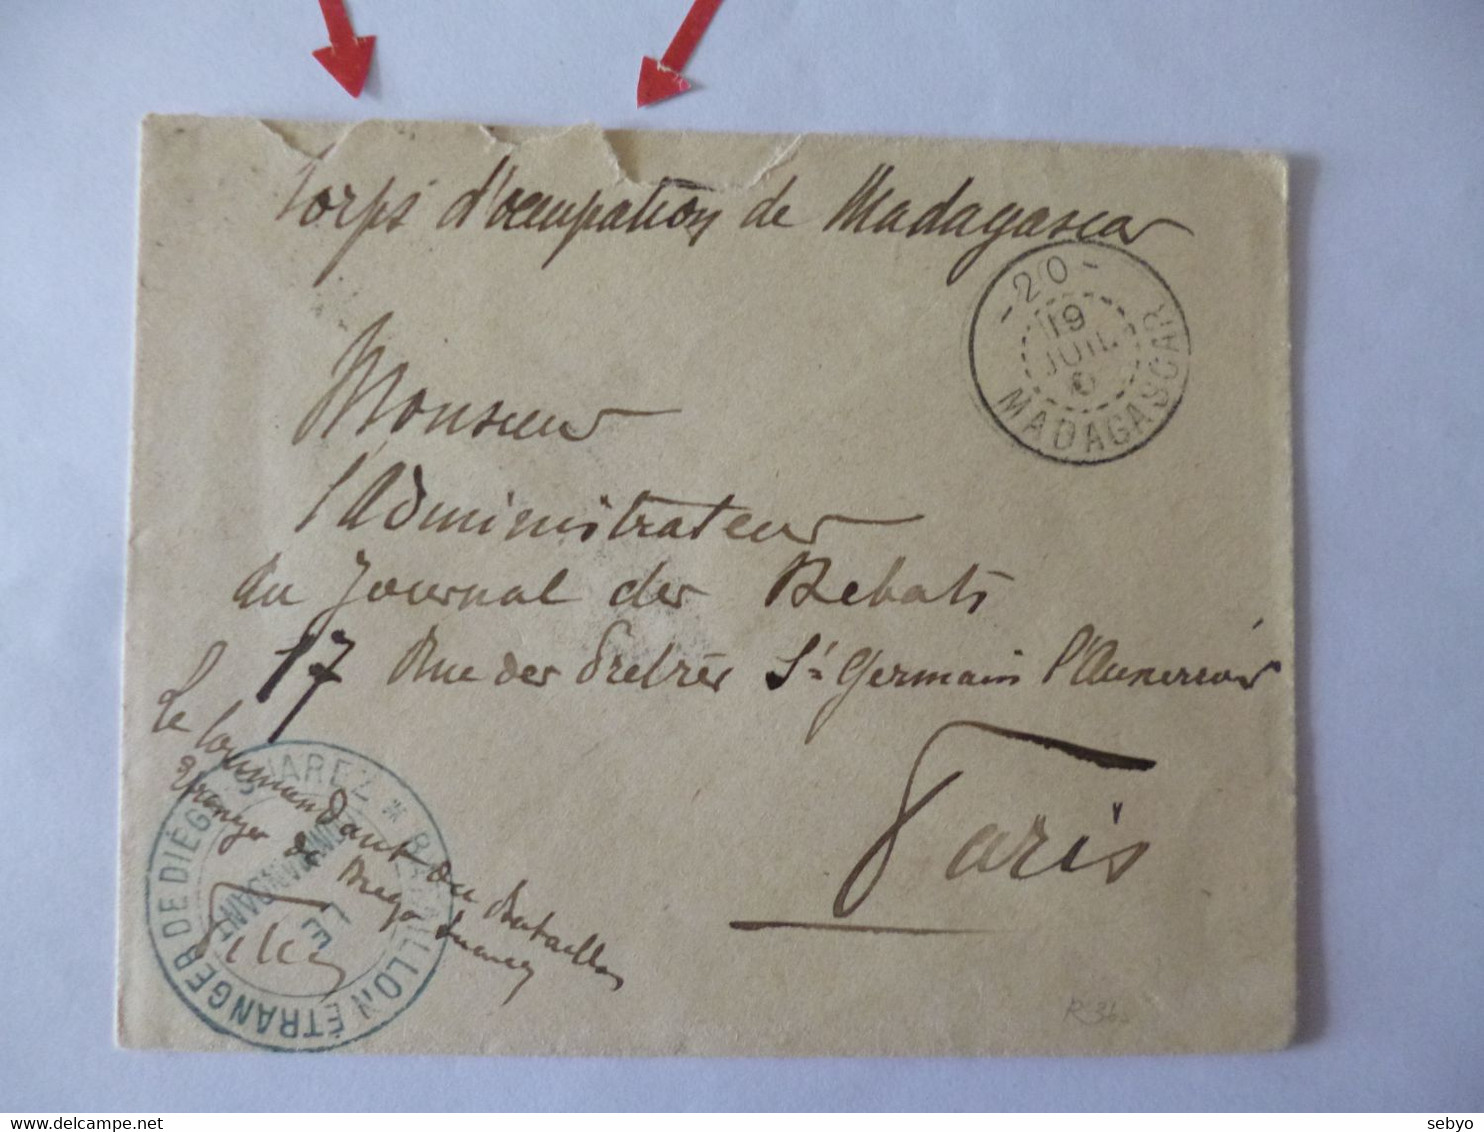 Corps d'occupation de Madagascar
- 20 -
19
JUIL
MADAGASCAR
Monsieur
l'Administrateur
du Journal des Debats
17 Rue des Prêtres St Germain l'Auxerrois
Paris
Le Commandant du Bataillon
Etranger de Diego Suarez
BATAILLON ÉTRANGER DE DIÉGO SUAREZ *
LE
COMMANDANT
sebyo